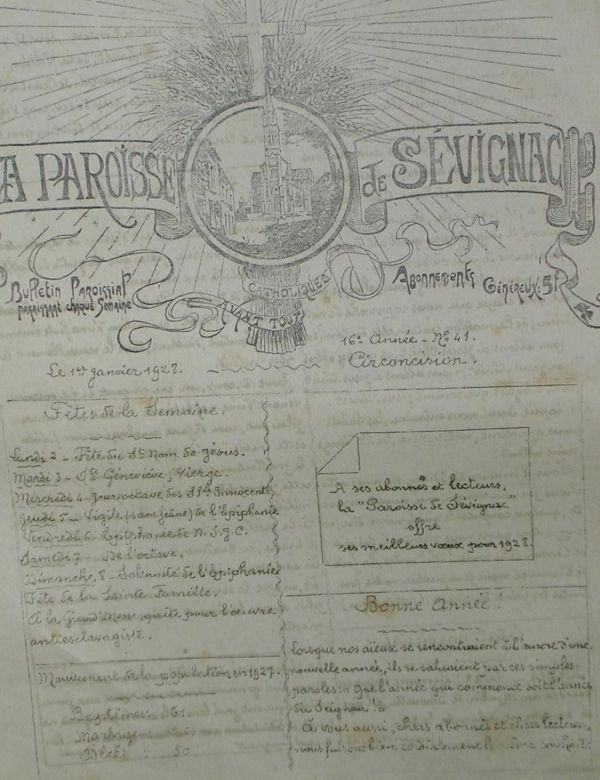 A PAROISSE de SÉVIGNAC
CATHOLIQUES
AVANT TOUT
Bulletin Paroissial
paraissant chaque Semaine
Abonnements
Généreux: 5f
16e Année - No 41.
Le 1er Janvier 1928.
Circoncision.
Fêtes de la Semaine
Lundi 2 - Fête du St Nom de Jésus.
Mardi 3 - Ste Geneviève, Vierge.
Mercredi 4 - Jour octave des Sts Innocents,
Jeudi 5 - Vigile (sans jeûne) de l'Epiphanie
Vendredi 6 - Epiphanie de N.S.J.C.
Samedi 7 - De l'octave.
Dimanche 8 - Solennité de l'Epiphanie
Fête de la Sainte Famille.
A la Grand'Messe, quête pour l'oeuvre
antiesclavagiste.
Mouvement de la population en 1927.
Baptêmes: 61
Mariages
Décès : 50
A ses abonnés et lecteurs,
la "Paroisse de Sévignac"
offre
ses meilleurs voeux pour 1928.
Bonne Année !
Lorsque nos aïeux se rencontraient à l'aurore d'une
nouvelle année, ils se saluaient par ces simples
paroles: " Que l'année qui commence soit l'année
du Seigneur ! "
A vous aussi, chers abonnés et chers lecteurs,
nous faisons bien cordialement le même souhait: